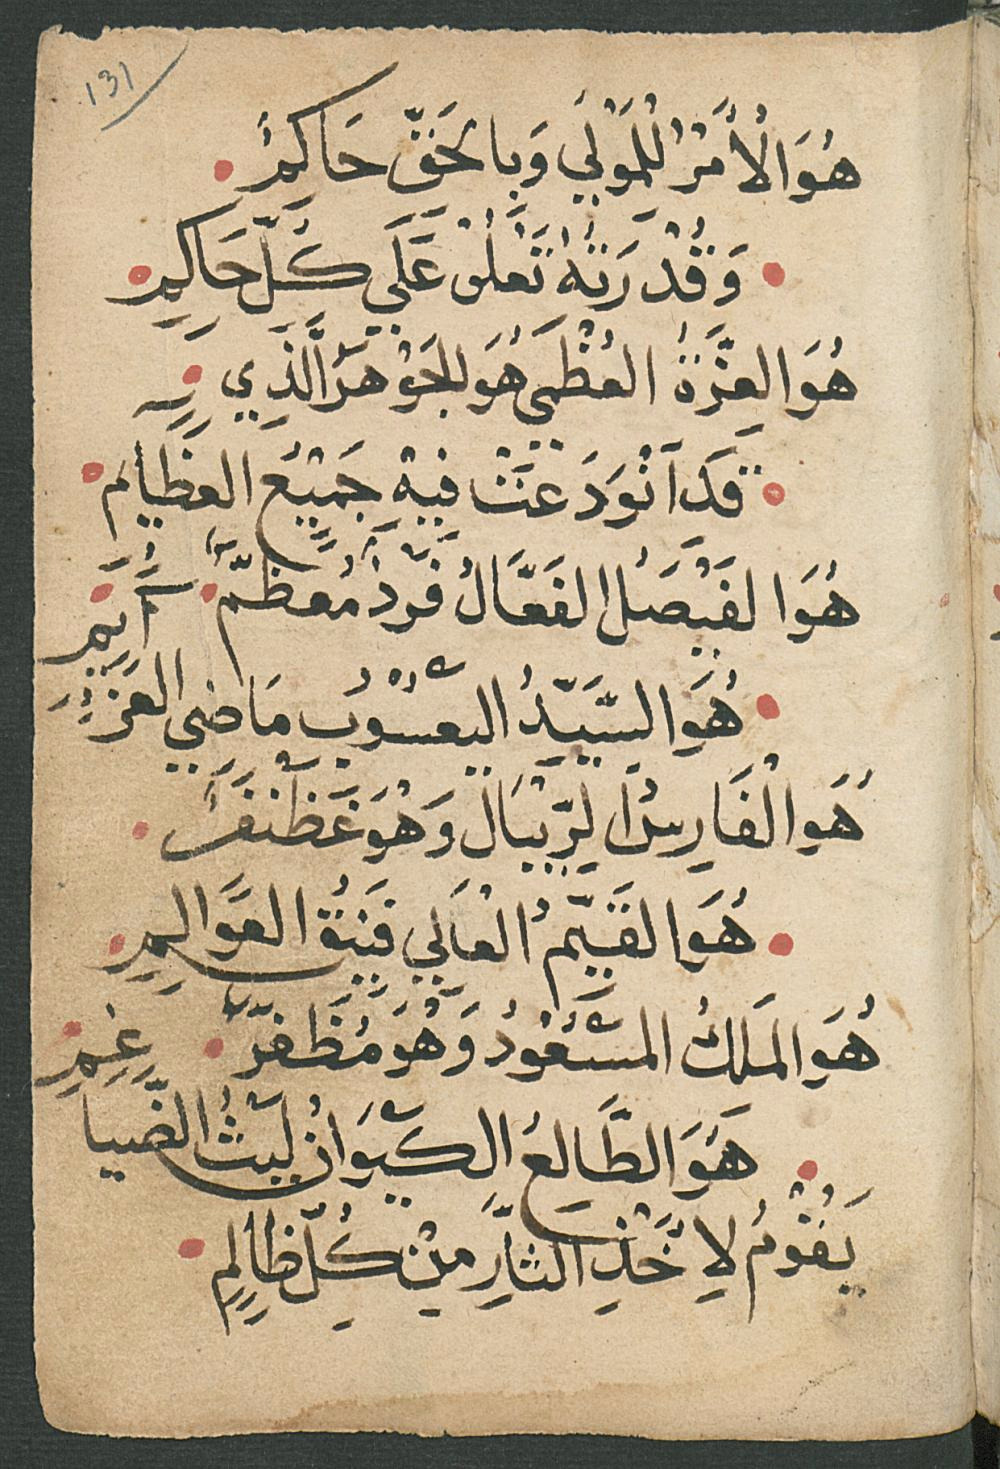 131
هُوَ الْأَمْرُ لِلْمَوْلَي وَبِالحَقّ حَاكِمُ
وَقُدْرَتُهُ تَعْلُو عَلَي كُلِّ حَاكِمِ
هُوَ العِزَّةُ العُظْمَي هُوَ الجَوْهَرُ الَّذِي
قَدَ آنْوَدَعَتْ فِيهِ جَمِيْعُ العَظَايِمِ
هُوَ الفَيْصَلُ الفَعَّالُ فَرْدٌ مُعَظَّمٌ
هُوَ السَّيِّدُ اليَعْسُوبُ مَاضِي العَزَآيِمِ
هُوَ الْفَارِسُ الرِّيْبَالُ وَهْوَ غَظَنْفَرٌ
هُوَ القَيِّمُ الْعَالِي العَوَالِمِ
هُوَ المَلِكُ المَسْعُودُ وَهْوَ مُظَفَّرٌ
هَُوَ الطَّالعُ الكَيْوَانُ لَيْثُ الضَّيَاغِمِ
يَقُوْمُ لِاَخْذِ الثَّارِ مِنْ كُلِّ ظَالِمِ